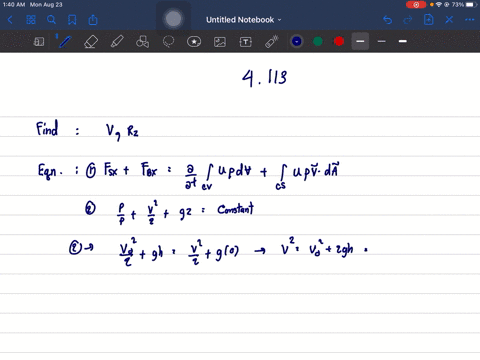 1:40 AM Mon Aug 23
73%
Untitled Notebook
4.113
Find : V, Rz
Eqn. : ① Fsx + FBx = ∂/∂t ∫cv uρdV + ∫cs uρV⃗·dA⃗
② P/ρ + V²/2 + gz = Constant
② → V₀²/2 + gh = V²/2 + g(0) → V² = V₀² + 2gh =